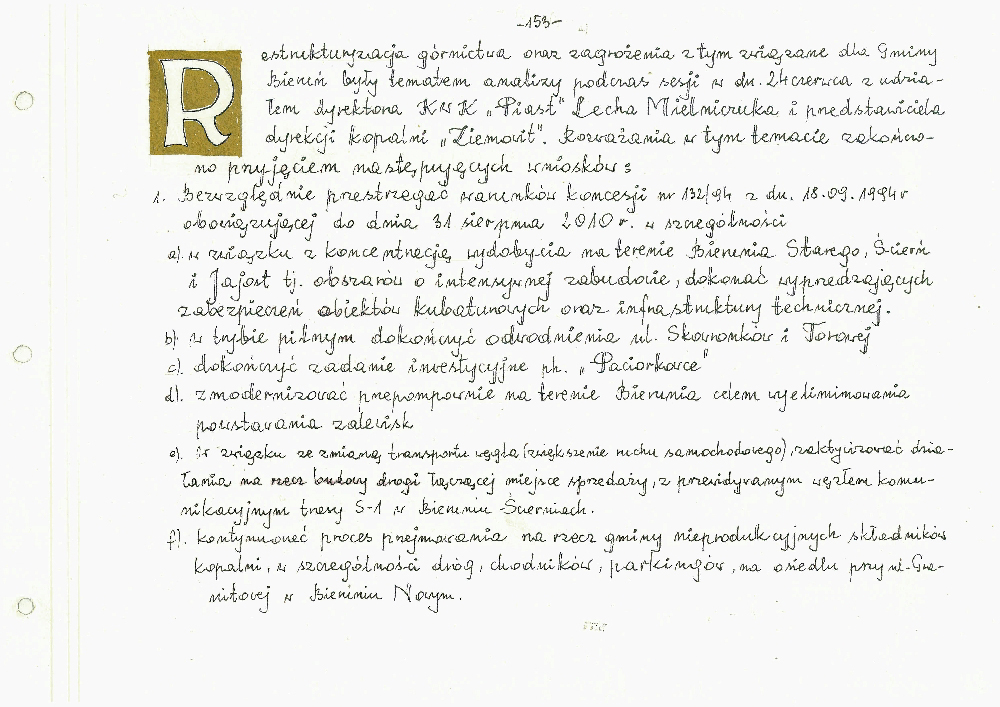 -153-
Restrukturyzacja górnictwa oraz zagrożenia z tym związane dla Gminy
Bieruń były tematem analizy podczas sesji w dn. 24 czerwca z udzia-
łem dyrektora KWK „Piast" Lecha Mielniczuka i przedstawiciela
dyrekcji kopalni „Ziemowit". Rozważania w tym temacie zakończo-
no przyjęciem następujących wniosków:
1. Bezwzględnie przestrzegać warunków koncesji nr 132/94 z dn. 18.09.1994r
obowiązującej do dnia 31 sierpnia 2010r. w szczególności
a). w związku z koncentracją wydobycia na terenie Bierunia Starego, Ścierń
i Jajost tj. obszarów o intensywnej zabudowie, dokonać wyprzedzających
zabezpieczeń obiektów kubaturowych oraz infrastruktury technicznej.
b). w trybie pilnym dokończyć odwodnienia ul. Skowronków i Torowej
c). dokończyć zadanie inwestycyjne ph. „Paciorkowce"
d). zmodernizować przepompownie na terenie Bierunia celem wyeliminowania
powstawania zalewisk
e). W związku ze zmianą transportu węgla (zwiększenie ruchu samochodowego), zaktywizować dzia-
łania na rzecz budowy drogi łączącej miejsce sprzedaży, z przewidywanym węzłem komu-
nikacyjnym trasy S-1 w Bieruniu-Ścierniach.
f). kontynuować proces przejmowania na rzecz gminy nieprodukcyjnych składników
kopalni, w szczególności dróg, chodników, parkingów, na osiedlu przy ul. Gra-
nitowej w Bieruniu Nowym.